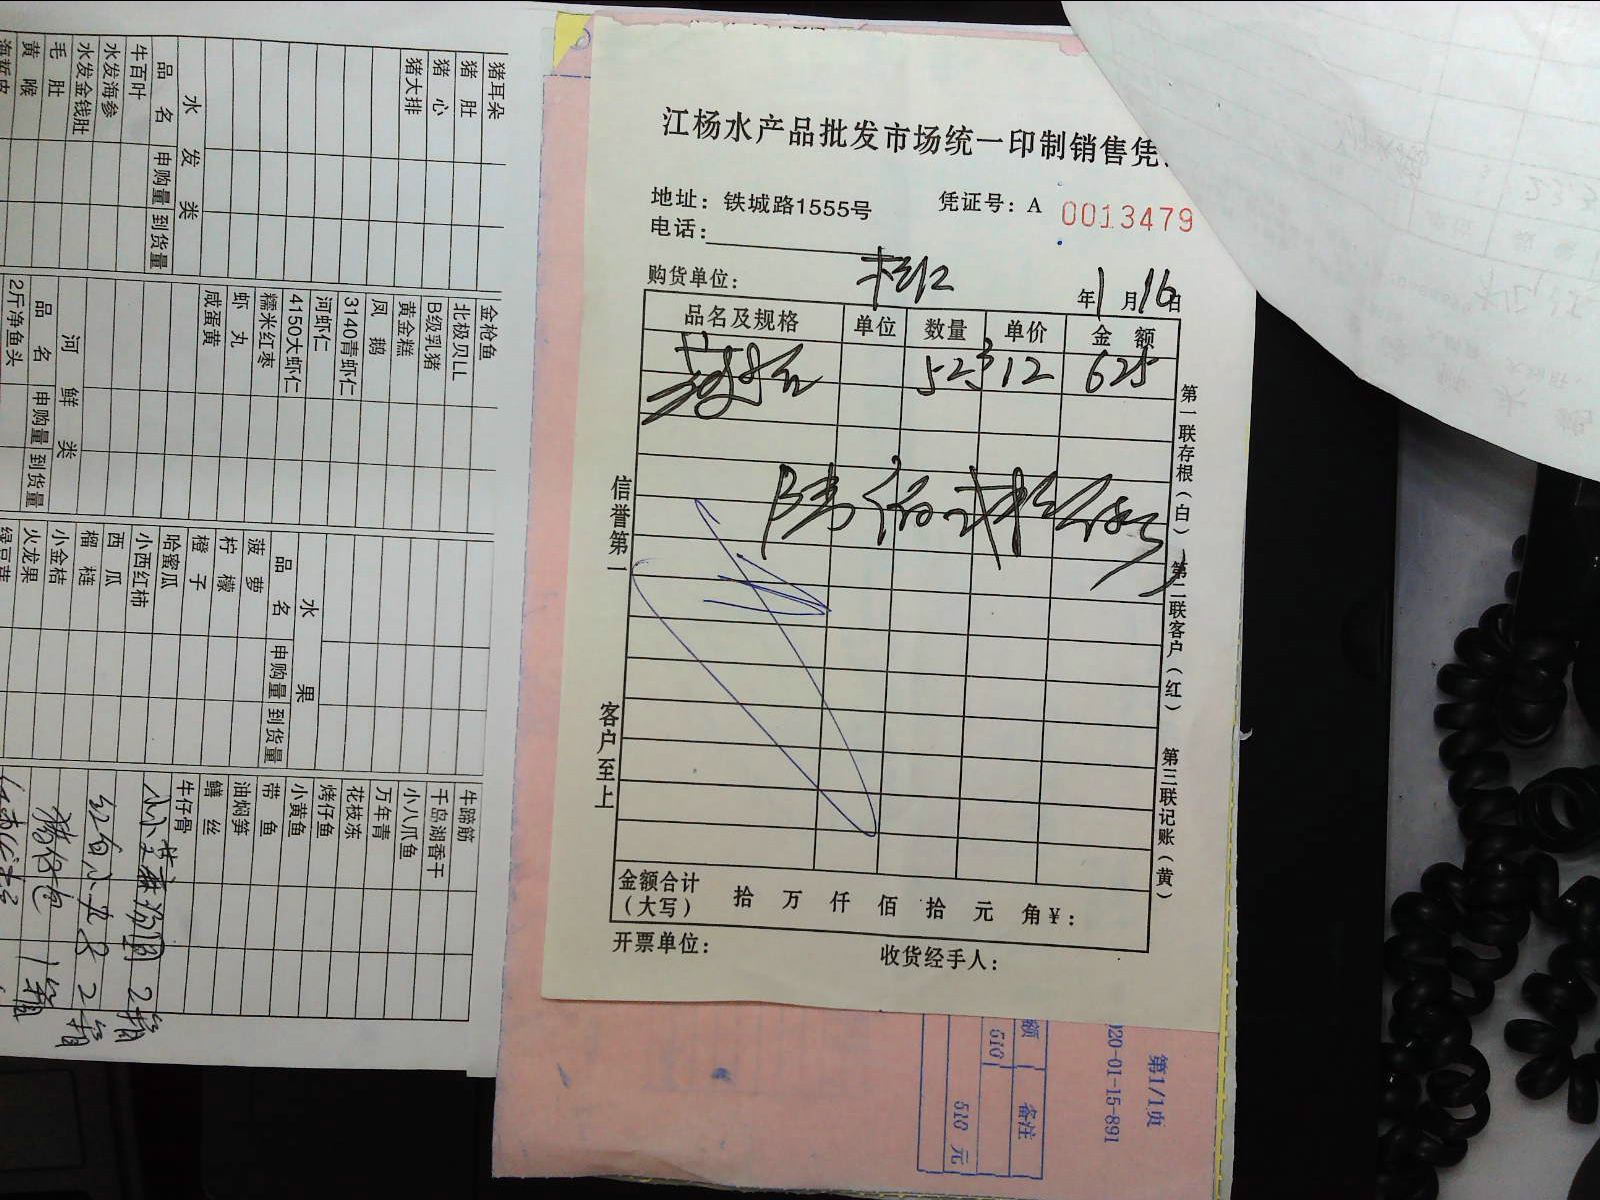 江杨水产品批发市场统一印制销售凭
地址：铁城路1555号
凭证号：A 0013479
电话：
购货单位：
年1月16日
品名及规格 单位 数量 单价 金 额
12 625
陆佰
信誉第一
客户至上
第一联存根（白）
第二联客户（红）
第三联记账（黄）
金额合计（大写） 拾 万 仟 佰 拾 元 角 ¥：
开票单位：
收货经手人：
猪耳朵
猪 肚
猪 心
猪大排
水 发 类
品 名 申购量 到货量
牛百叶
水发海参
水发金钱肚
毛 肚
黄 喉
海蜇皮
金枪鱼
北极贝LL
B级乳猪
黄金糕
凤 鹅
3140青虾仁
河虾仁
4150大虾仁
糯米红枣
虾 丸
咸蛋黄
河 鲜 类
品 名 申购量 到货量
2斤净鱼头
水 果
品 名 申购量 到货量
菠 萝
柠 檬
橙 子
哈蜜瓜
小西红柿
西 瓜
榴 梿
小金桔
火龙果
绿豆芽
牛蹄筋
千岛湖香干
小八爪鱼
万年青
花枝冻
烤仔鱼
小黄鱼
带 鱼
油焖笋
鳝 丝
牛仔骨
小小芝麻汤圆 2箱
2箱
1箱
第1/1页
020-01-15-891
额 备注
510
510 元